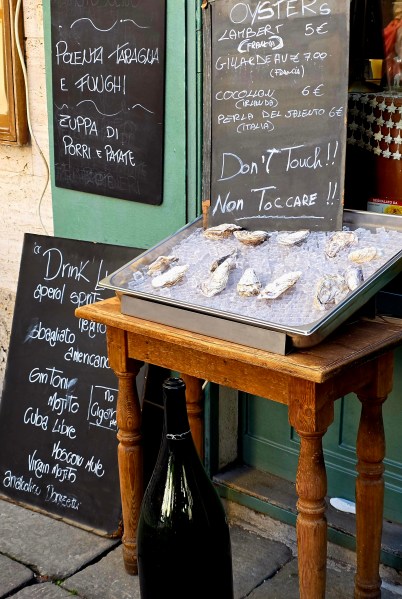 POLENTA TARAGLIA
E FUNGHI
ZUPPA DI
PORRI E PATATE
OYSTERS
LAMBERT 5€
(FRANCIA)
GILLARDEAU € 7.00
(FRANCIA)
COCOLLON 6 €
(IRLANDA)
PERLA DEL SALENTO 6€
(ITALIA)
DON'T TOUCH!!
NON TOCCARE!!
Drink
aperol
sbagliato
americano
Gin Tonic
Mojito
Cuba Libre
Moscow Mule
Virgin Mojito
analcolico
No